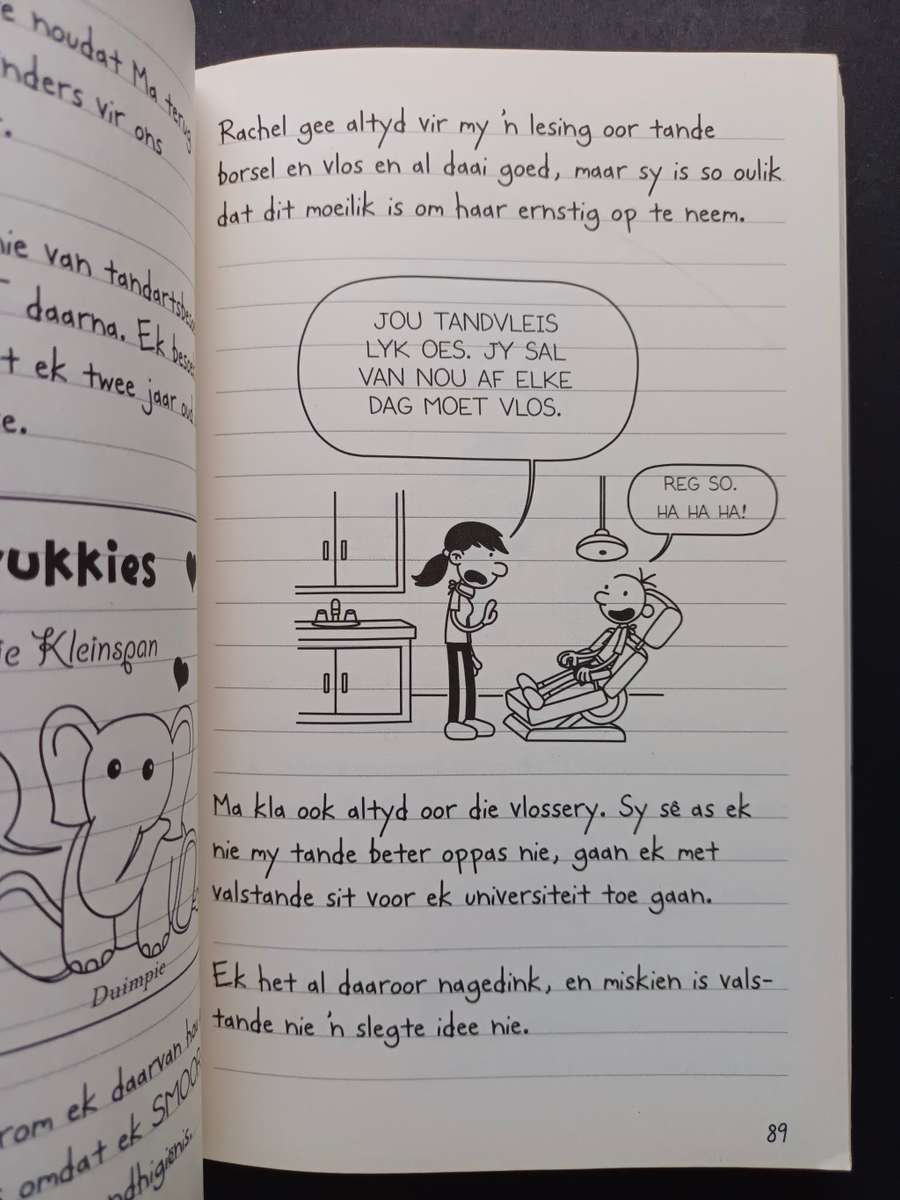 noudat Ma terug
nders vir ons
nie van tandarts
daarna. Ek
t ek twee jaar oud
e.
ukkies
ie Kleinspan
Duimpie
rom ek daarvan
omdat ek
ndhigiënis.
Rachel gee altyd vir my 'n lesing oor tande
borsel en vlos en al daai goed, maar sy is so oulik
dat dit moeilik is om haar ernstig op te neem.
JOU TANDVLEIS
LYK OES. JY SAL
VAN NOU AF ELKE
DAG MOET VLOS.
REG SO.
HA HA HA!
Ma kla ook altyd oor die vlossery. Sy sê as ek
nie my tande beter oppas nie, gaan ek met
valstande sit voor ek universiteit toe gaan.
Ek het al daaroor nagedink, en miskien is vals-
tande nie 'n slegte idee nie.
89